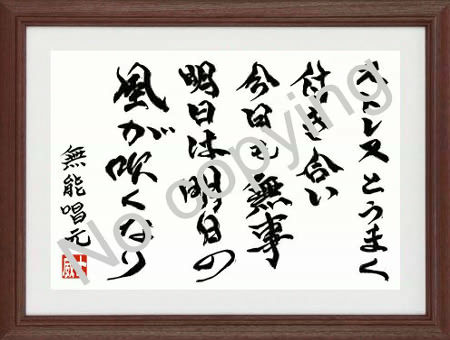 ストレスとうまく
付き合い
今日も無事
明日は明日の
風が吹くなり
無能唱元
No copying